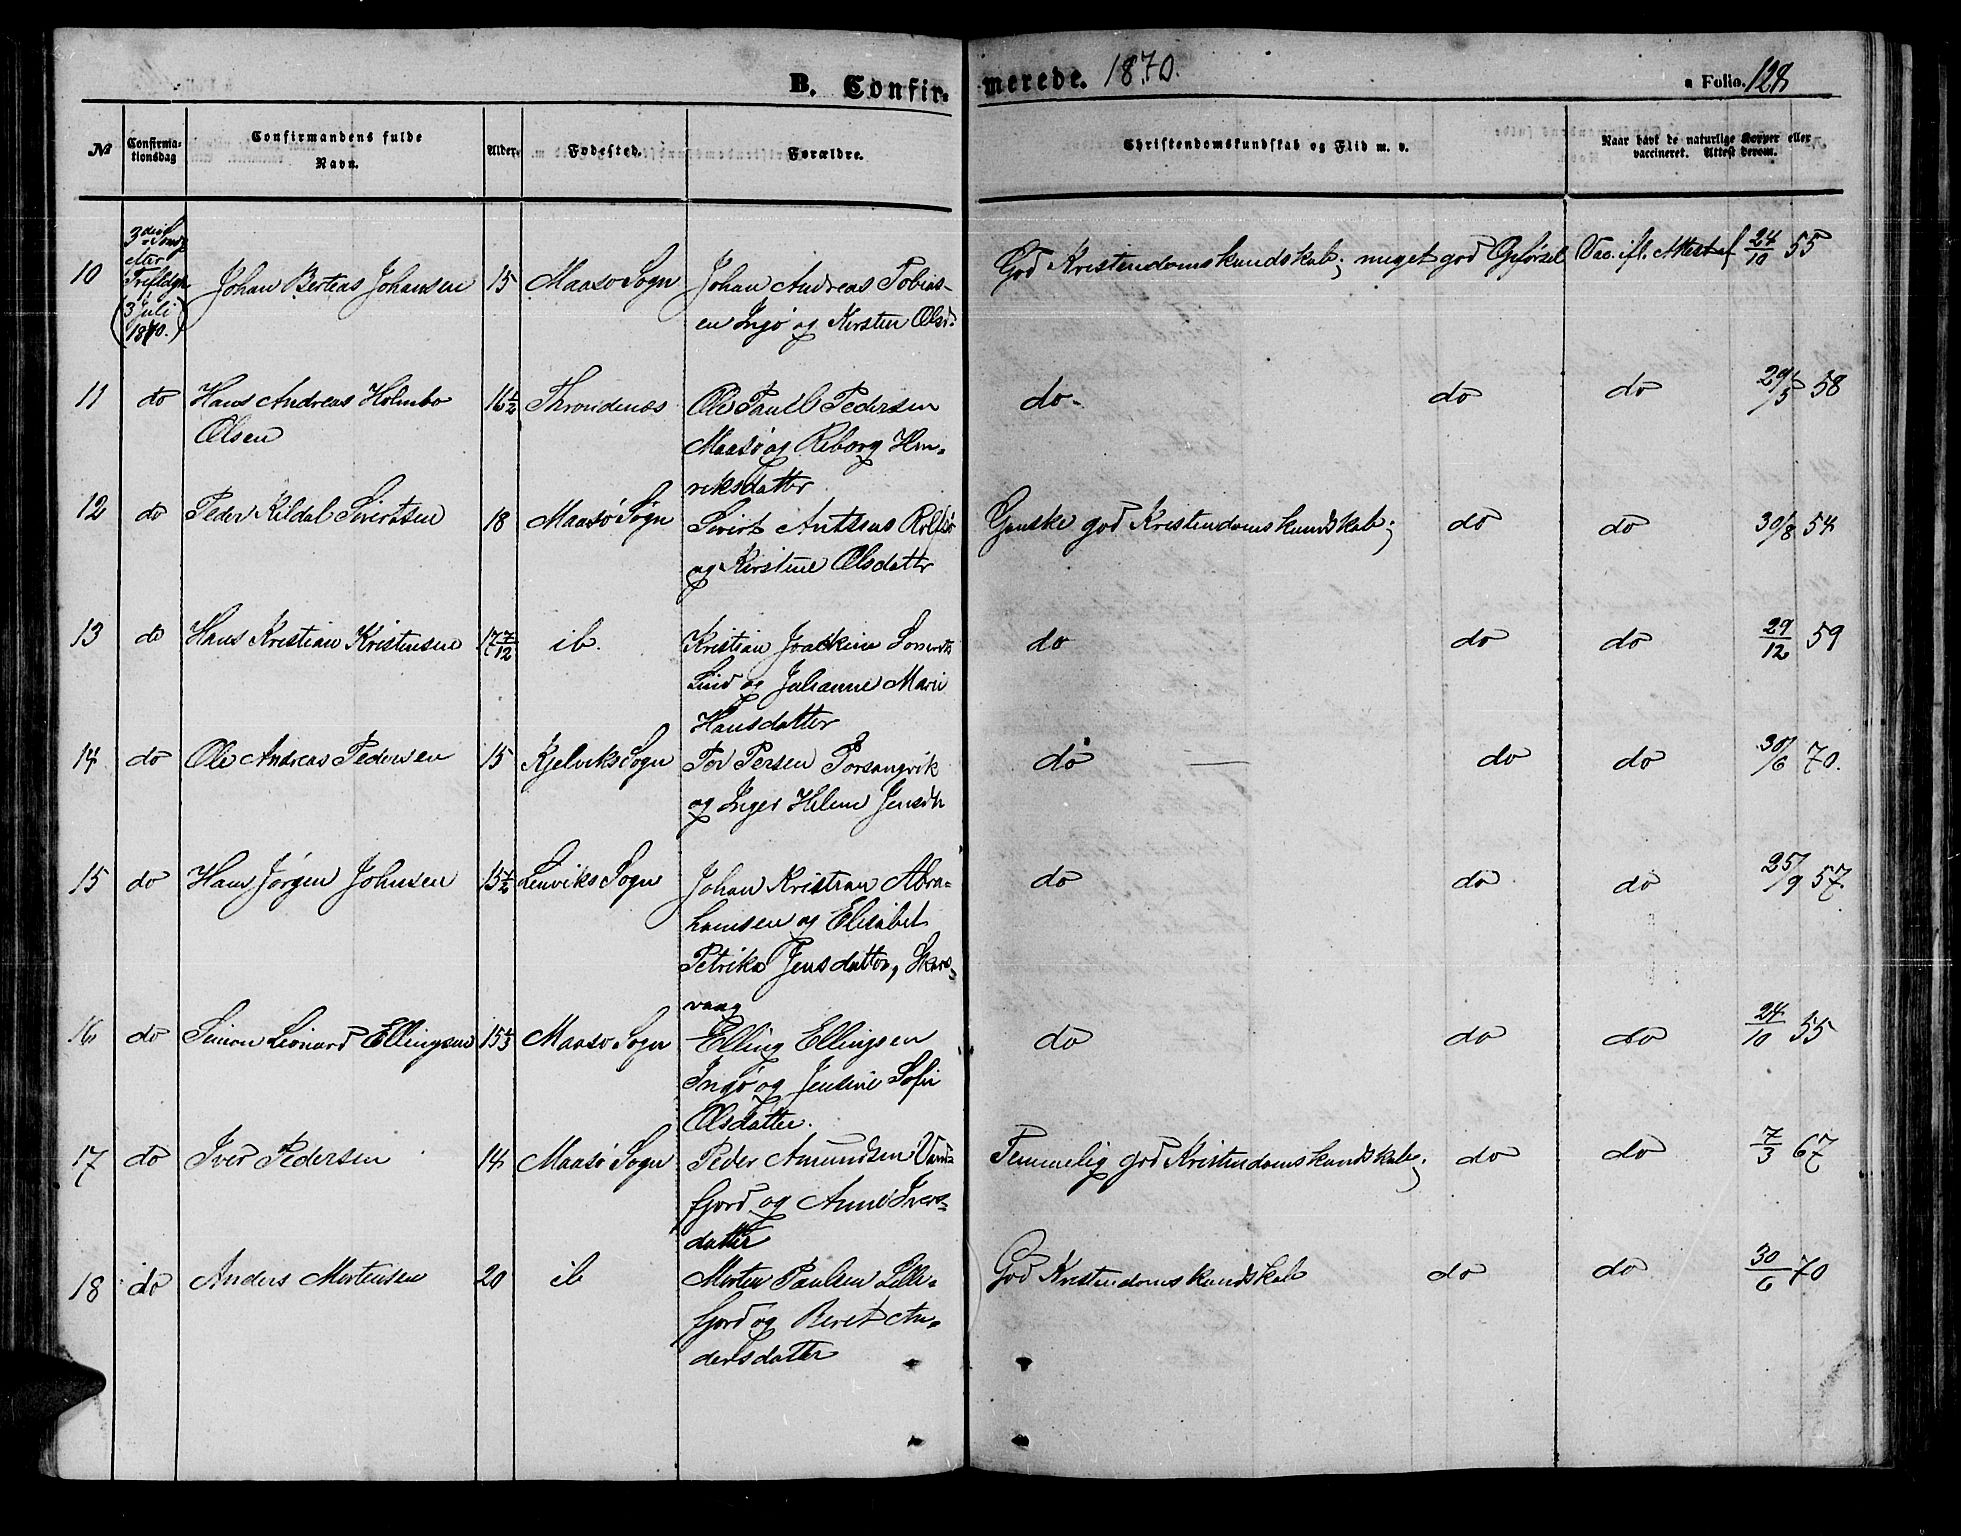 B. Confirmerede. 1870.
a Folio. 128
№ Confirmationsdag Confirmandens fulde Navn. Alder. Fødested. Forældre. Christendomskundskab og Flid m. v. Naar havt de naturlige Kopper eller vaccineret. Attest derom.
10 3die Sønd. efter Trefoldgh. (3 Juli 1870.) Johan Berteas Johansen 15 Maasø Sogn Johan Andreas Tobias- God Kristendomskundskab; meget god Opførsel Vac. ifl. Attest af 24/10 55
en Ingø og Kirsten Olsd.
11 do Hans Andreas Holmbo 16½ Throndenæs Ole Paul Pedersen do do do 29/5 58
Olsen Maasø og Reborg Hen-
riksdatter
12 do Peder Kildal Sivertsen 18 Maasø Sogn Sivert Rolfsø Ganske god Kristendomskundskab; do do 30/8 54
og Kirstine Olsdatter
13 do Hans Kristian Kristensen 17 7/12 ib. Kristian Joackim do do do 29/12 59
Lund og Julianne Marie
Hansdatter
14 do Ole Andreas Pedersen 15 Kjelviks Sogn Per Persen Porsangvik do — do do 30/6 70.
og Inger Helene Jensdtr
15 do Hans Jørgen Johnsen 15½ Lenviks Sogn Johan Kristian Abra- do do do 25/9 57.
hamsen og Elisabet
Petrika Jensdatter, Skars-
vaag
16 do Simon Leonard Ellingsen 15⅓ Maasø Sogn Elling Ellingsen do do do 24/10 55
Ingø og Jensine Sofie
Olsdatter.
17 do Iver Pedersen 14 Maasø Sogn Peder Amundsen Vand- Temmelig god Kristendomskundskab; do do 7/3 67
fjord og Anne Ivers-
datter
18 do Anders Mortensen 20 ib Morten Paulsen Lille- God Kristendomskundskab do do 30/6 70
fjord og Beret An-
dersdatter